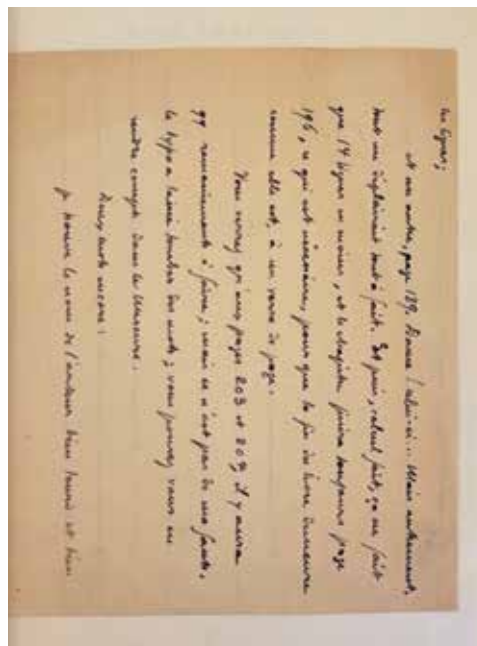 les lignes ;
et un autre, page 189. Donne ! celui-ci... Mais autrement,
tout me déplairait tout à fait. Et puis, calcul fait, ça ne fait
que 14 lignes en moins, et le chapitre finira toujours page
196, ce qui est nécessaire, pour que la fin du livre demeure
comme elle est, à un verso de page.
Vous verrez qu'aux pages 203 et 209, il y aura
qq remaniements à faire ; mais ce n'est pas de ma faute,
le typo a laissé tomber des mots ; vous pouvez vous en
rendre compte dans le Mercure.
Deux mots encore :
je trouve le nom de l'auteur bien lourd et bien